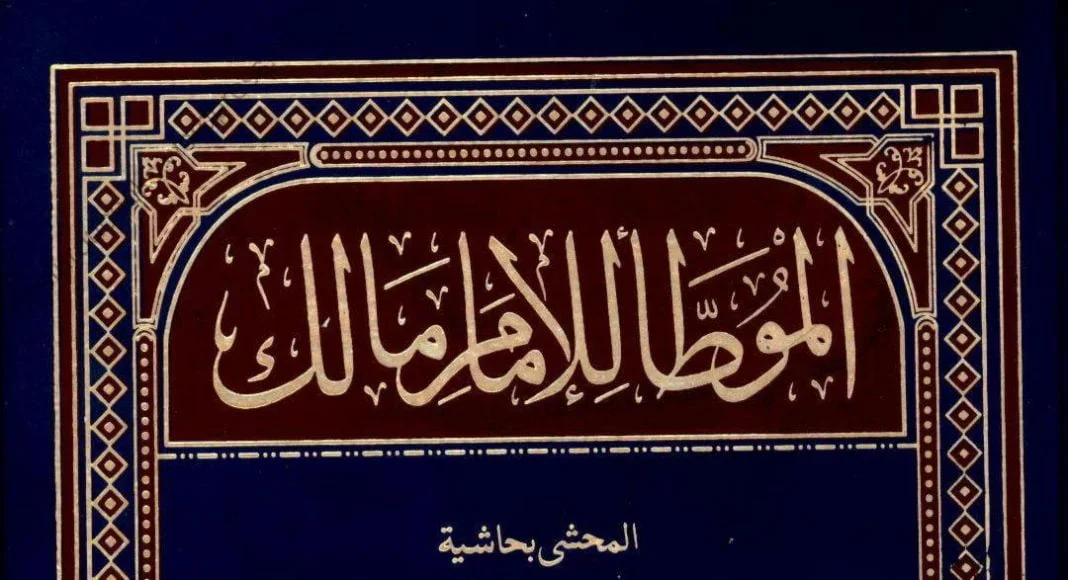 المُوطَّأ لِلإمَامِ مَالك
المحشى بحاشية